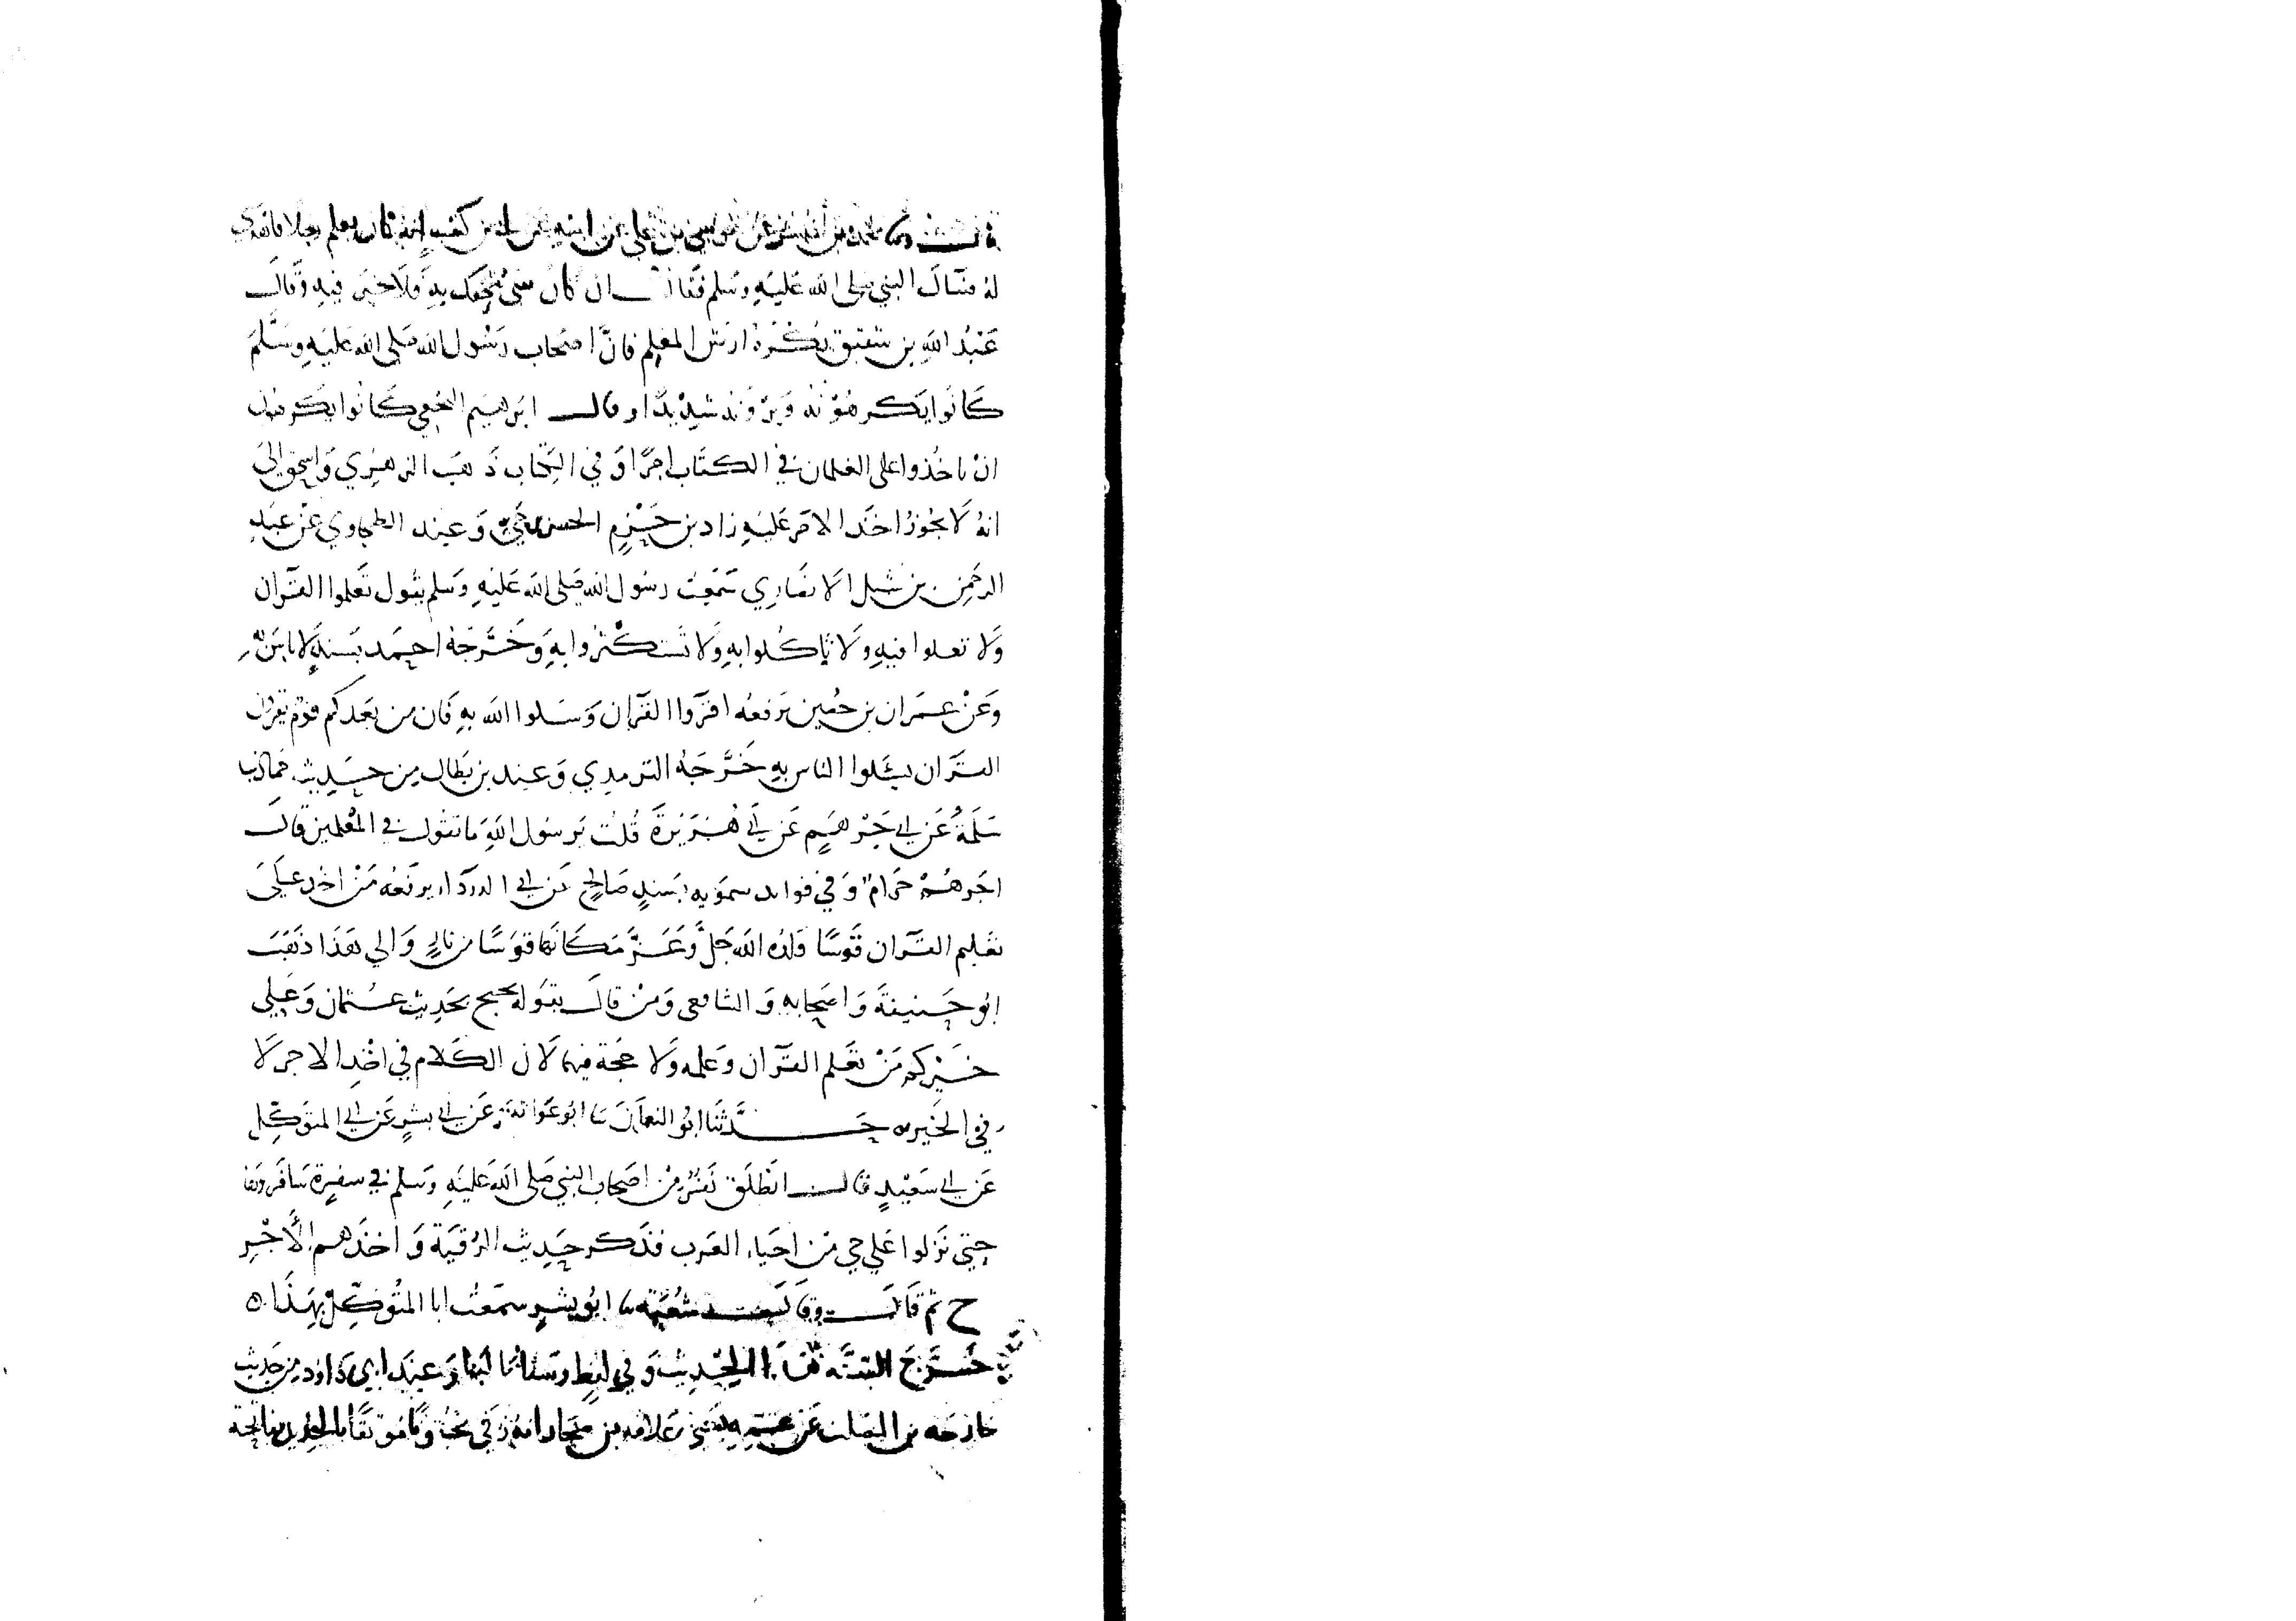 قال محمد بن عن موسى بن علي عن ابيه عن ابي بن كعب انه كان يعلم رجلا فاهدي
له فسال النبي صلى الله عليه وسلم فقال ان كان شي يتحفك به فلا خير فيه وقال
عَبْدُ الله بن شقيق يكره ارش المعلم فان اصحاب رَسُول الله صَلى الله عَليهِ وسَلَّمَ
كَانُوا يَكرهُوْنه وَيرَوْنه شدِيْدًا وقال ابرهيم النخعي كَانوا يكرهون
انْ ياخُذوا على الغلمان في الكتَاب اجرًا وَفي الباب ذَهَب الزهْرِي وَاسحق الى
انهُ لَا يجُوزُ اخذ الاجر عَليْه زاد بن حَزمٍ الحسن بن حيّ وَعند الطحاوي عَنْ عَبْد
الرحمن بن شبل الانصَارِي سَمعت رسُول الله صَلى الله عَليْهِ وَسَلم يقول تَعَلموا القرآن
وَلا تغلوا فيهِ ولَا تَاكُلوا بهِ وَلا تَستكْثرُوا بهِ وَخَرَّجَهُ احمَد بسَندٍ لَا باس به
وَعَنْ عِمَران بن حُصَين يَرفعُه اقرَؤا القرآن وَسَلوا الله بهِ فَان من بَعدكم قوم يقرؤن
القرآن يسْئلوا الناس بهِ خَرَّجَهُ الترمدِي وَعند بن بَطال مِن حَديث حماد بن
سَلَمةُ عَن ابي جَرهَمٍ عَن ابي هُرَيْرَةَ قُلت يرسُول الله مَا تقول في المعْلمين قال
اجَرهُمْ حَرَام وَفي فوائد سمويه بسَندٍ صَالح عَن ابي الدردَاء يرفَعُه مَنْ اخذ عَلَى
تعَليم القرآن قَوسًا قلده الله جَلّ وَعَزَّ مَكَانَهَا قوسًا من نارٍ وَالى هَذا ذهَبَ
ابُو حَنيفَةَ وَاصحَابه وَالشافعى وَمنْ قالَ بقوله يحتج بحَديث عُثمان وَعَلي
خَيْركم مَنْ تعَلم القرآن وَعلمه وَلا حجَة فيهما لَان الكَلام في اخْذِ الاجر لَا
في الخَيرية حَدَّثَنا ابُو النعمان ثنا ابوُ عَوانَةَ عَن ابي بشرٍ عَن ابي المتَوَكِّل
عَن ابي سَعيْدٍ قال انطَلَق نَفَر مِن اصحَاب النبي صَلى الله عَليْهِ وَسَلم في سفرةٍ سَافَروها
حتى نَزلوا عَلي حي مَن احيَاء العَرب فذَكر حَديث الرُقيَة وَاخذَهم الأجْر
ح ثم قَالَ وقال شعبة ثنا ابُو بشرٍ سمعتُ ابا المتوكِّل بهَذا ه
خَرَّجَ الستَّة هذا الحَديث وَفي لفظ وسقانا لبنا وَعِند ابي دَاوُد من حَديث
خارجَه بن الصَلت عَن عَمّه يعني علاقه بن صحار انهُ رَقي مجنونا موثقًا بالحديد بفاتحة